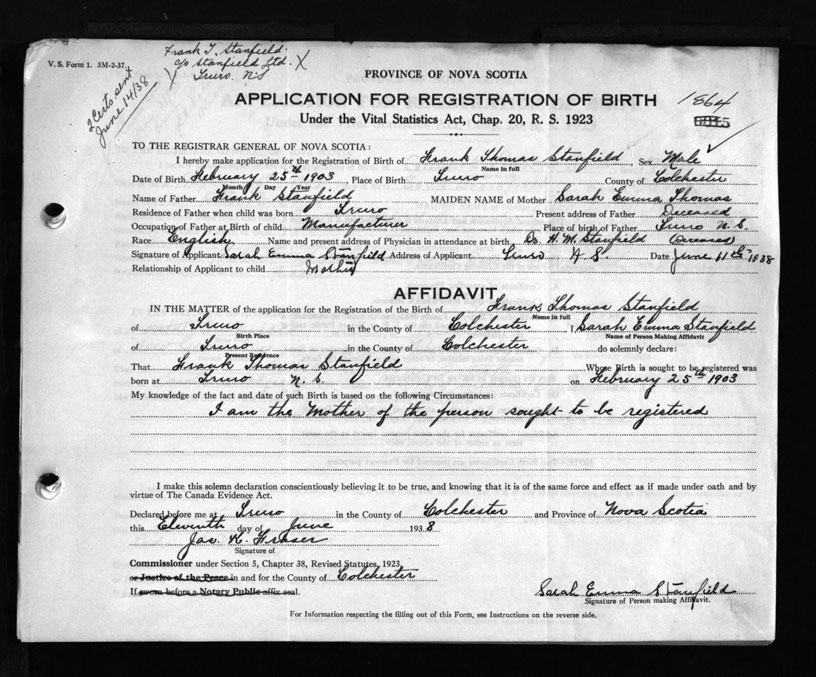 V. S. Form 1. 3M-2-37.
Frank T. Stanfield.
c/o Stanfield Ltd. X
X Truro. N.S
2 Certs sent
June 14/38
PROVINCE OF NOVA SCOTIA
APPLICATION FOR REGISTRATION OF BIRTH
1864
Under the Vital Statistics Act, Chap. 20, R. S. 1923
TO THE REGISTRAR GENERAL OF NOVA SCOTIA:
I hereby make application for the Registration of Birth of Frank Thomas Stanfield, Sex Male
Name in full
Date of Birth February 25th 1903, Place of Birth Truro County of Colchester
Month Day Year
Name of Father Frank Stanfield MAIDEN NAME of Mother Sarah Emma Thomas
Residence of Father when child was born Truro Present address of Father Deceased
Occupation of Father at Birth of child Manufacturer Place of birth of Father Truro N.S.
Race English Name and present address of Physician in attendance at birth Dr. H. M. Stanfield (Deceased)
Signature of Applicant Sarah Emma Stanfield Address of Applicant Truro N S Date June 11th 1938
Relationship of Applicant to child Mother
AFFIDAVIT
IN THE MATTER of the application for the Registration of the Birth of Frank Thomas Stanfield
Name in full
of Truro in the County of Colchester I Sarah Emma Stanfield
Birth Place Name of Person Making Affidavit
of Truro in the County of Colchester do solemnly declare:
Present Residence
That Frank Thomas Stanfield Whose Birth is sought to be registered was
born at Truro N. S. on February 25th 1903
My knowledge of the fact and date of such Birth is based on the following Circumstances:
I am the Mother of the person sought to be registered
I make this solemn declaration conscientiously believing it to be true, and knowing that it is of the same force and effect as if made under oath and by
virtue of The Canada Evidence Act.
Declared before me at Truro in the County of Colchester and Province of Nova Scotia
this Eleventh day of June 1938
Jas. H. Fraser
Signature of
Commissioner under Section 5, Chapter 38, Revised Statutes, 1923,
or Justice of the Peace in and for the County of Colchester
If sworn before a Notary Public affix seal.
Sarah Emma Stanfield
Signature of Person making Affidavit.
For Information respecting the filling out of this Form, see Instructions on the reverse side.